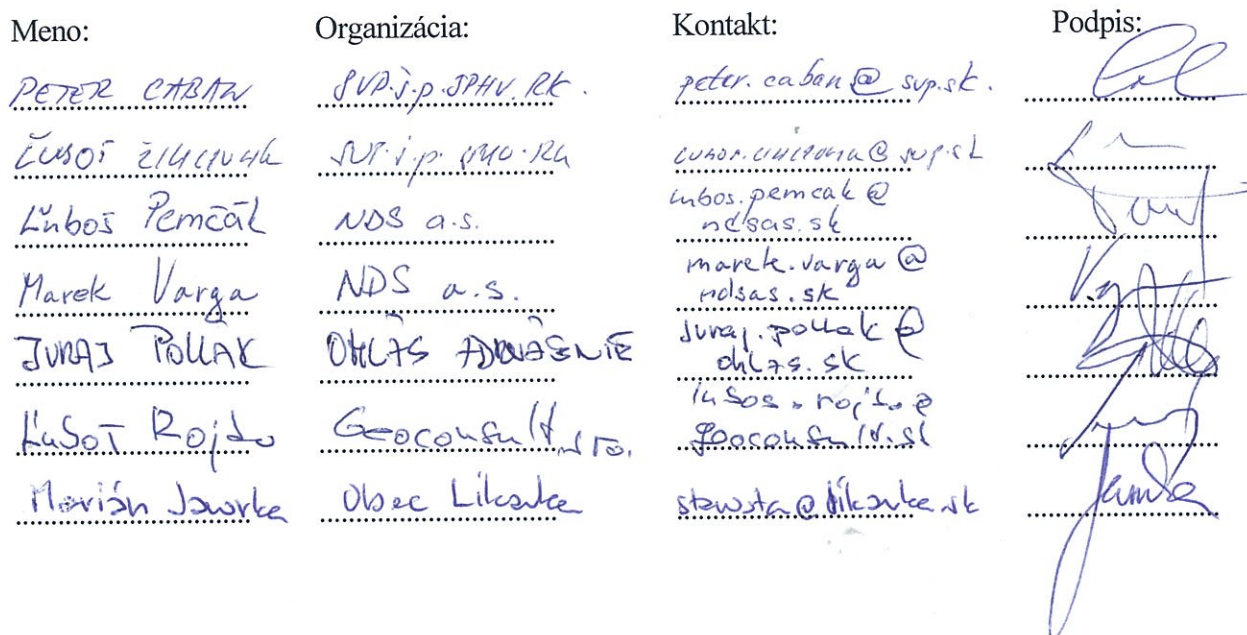 Meno: Organizácia: Kontakt: Podpis:
PETER CABAN SVP.š.p. SPHV. RK. peter.caban@svp.sk.
Ľuboš š.p. @svp.sk
Ľuboš Pemčák NDS a.s. lubos.pemcak@
ndsas.sk
Marek Varga NDS a.s. marek.varga@
ndsas.sk
JURAJ POLLAK OHLŽS juraj.pollak@
ohlzs.sk
Ľuboš Rojko Geoconsult, s r.o. lubos.rojko@
geoconsult.sk
Marián Javorka Obec Likavka starosta@likavka.sk